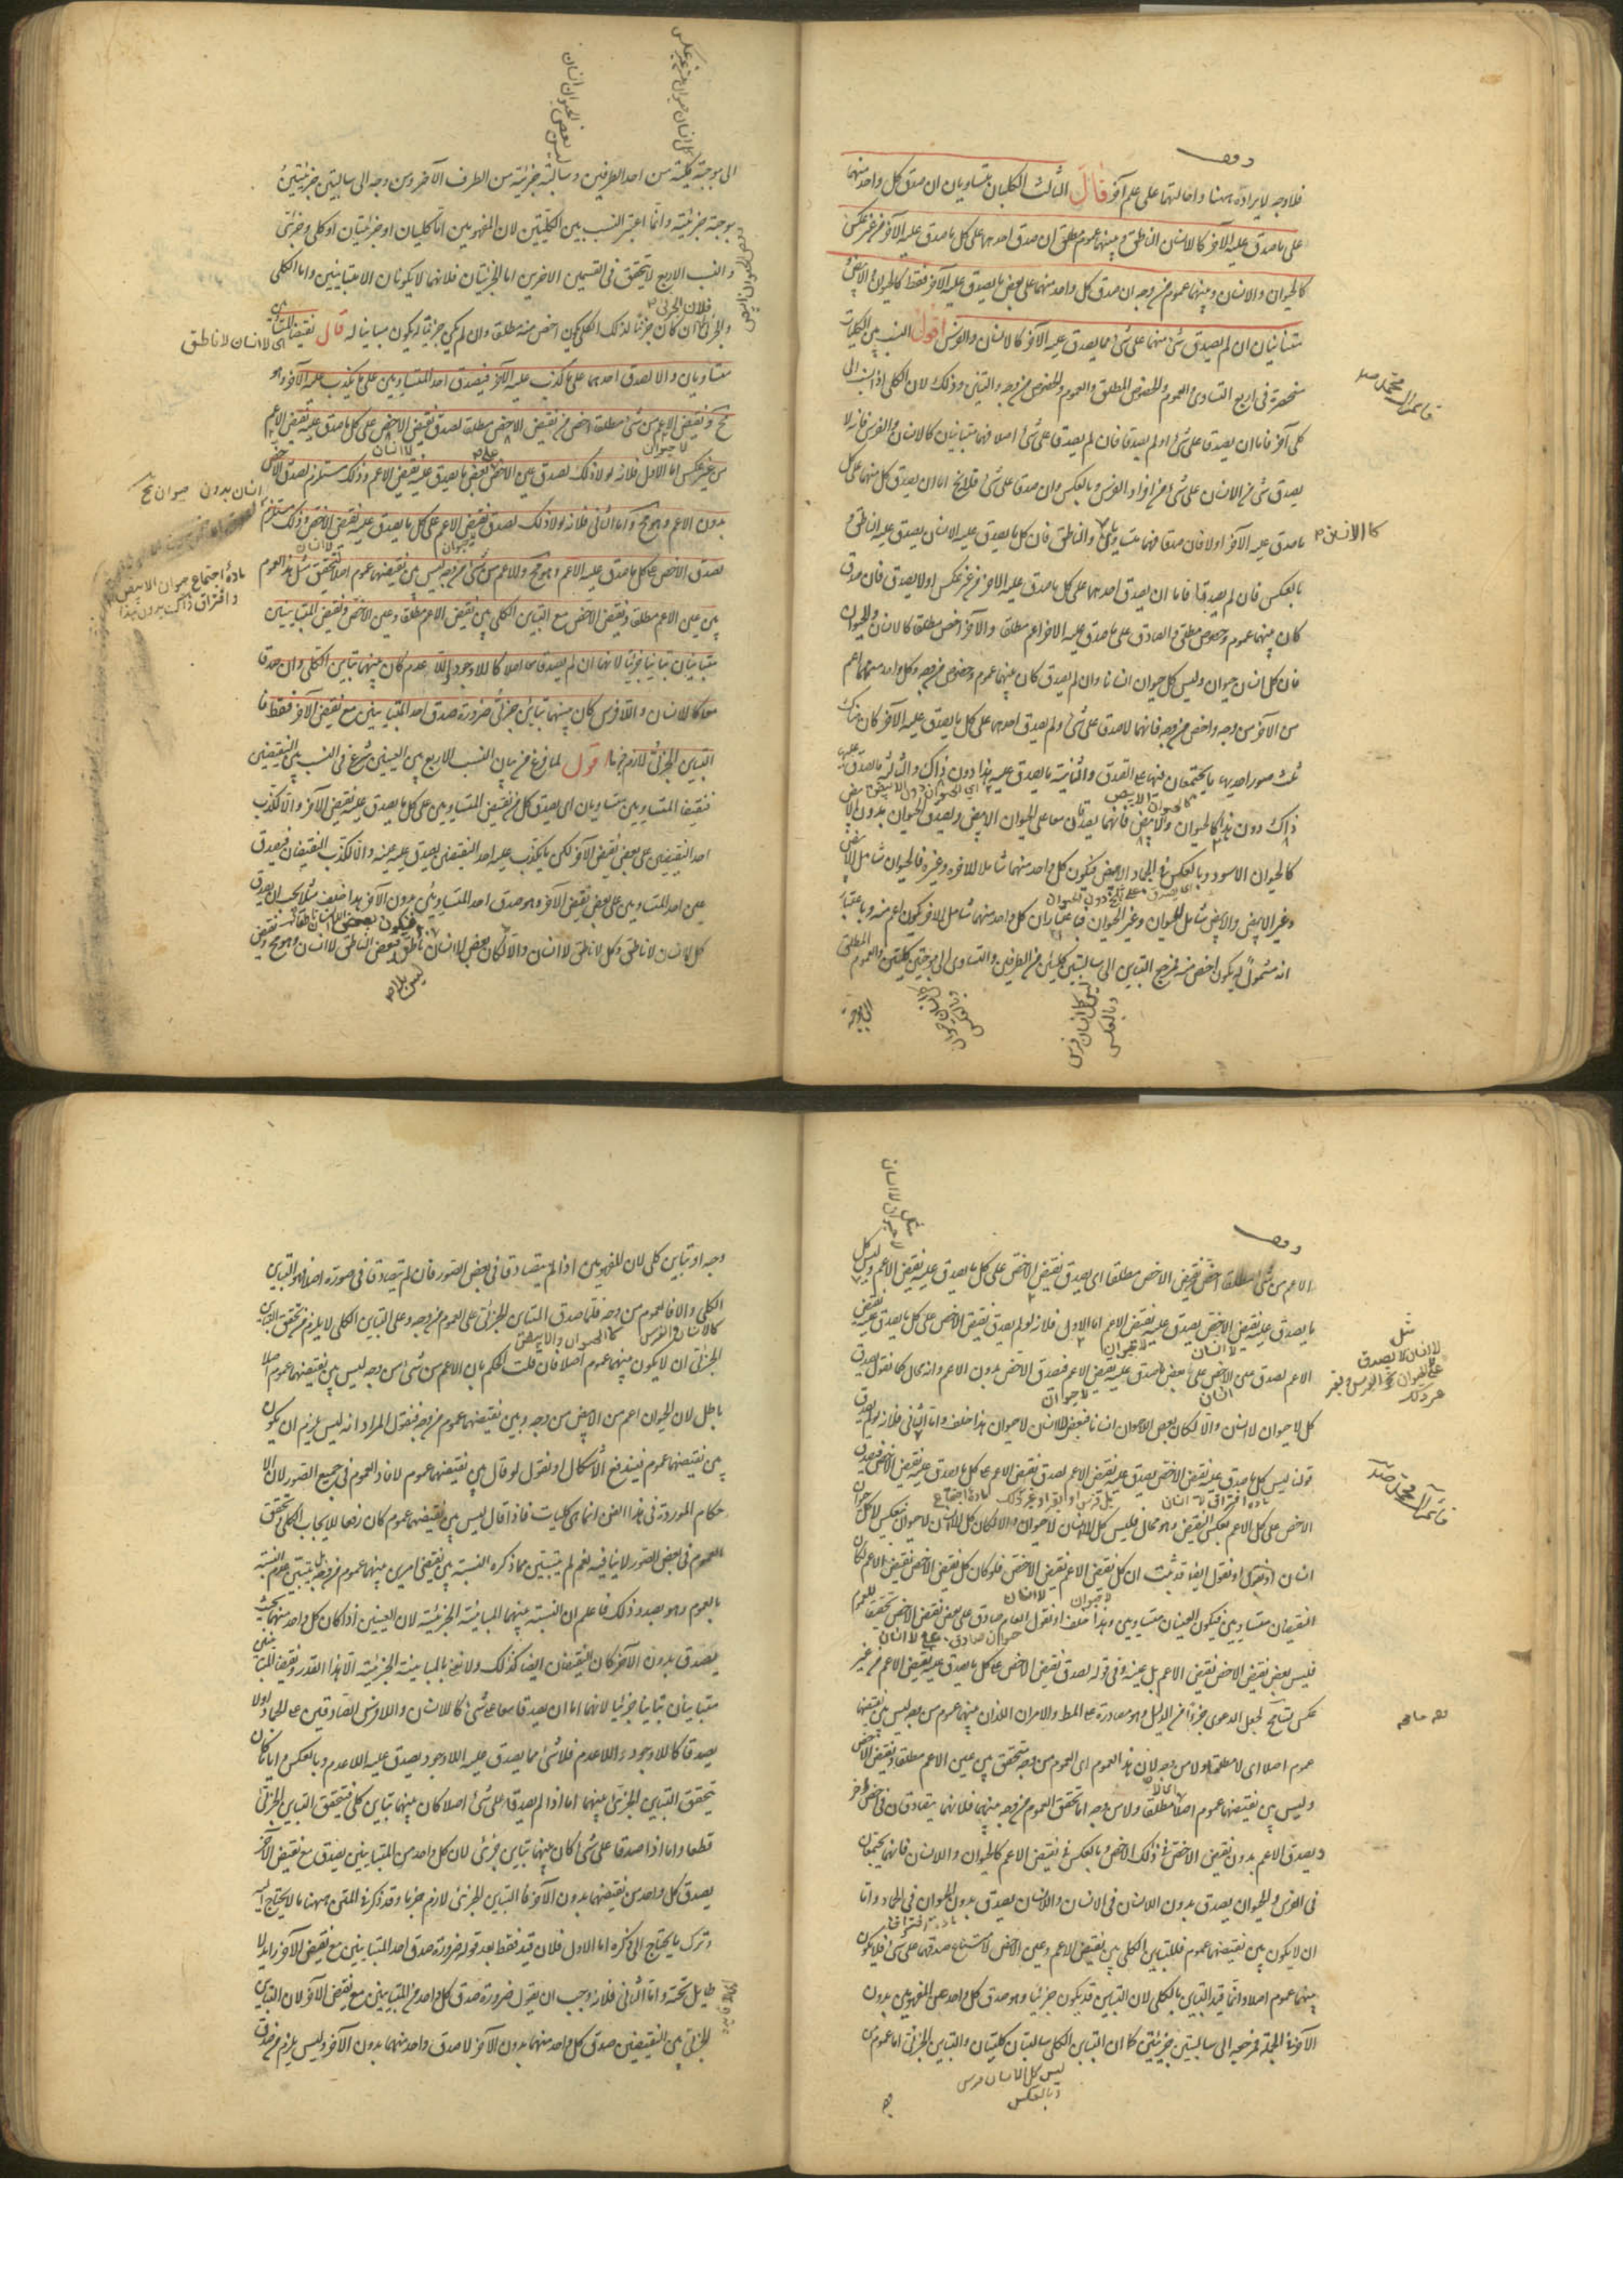 فلا وجه لايراده ههنا واحالتها على علم آخر قال الثالث الكليان متساويان ان صدق كل واحد منهما
على ما صدق عليه الآخر كالانسان والناطق وبينهما عموم مطلق ان صدق احدهما على كل ما صدق عليه الآخر من غير عكس
كالحيوان والانسان وبينهما عموم من وجه ان صدق كل واحد منهما على بعض ما يصدق عليه الآخر فقط كالحيوان والابيض
متباينان ان لم يصدق شئ منهما على شئ مما يصدق عليه الآخر كالانسان والفرس اقول النسب بين الكليات
منحصرة فى اربع التساوى والعموم والخصوص المطلق والعموم والخصوص من وجه والتباين وذلك لان الكلى اذا نسب الى
كلى آخر فاما ان يصدقا على شئ او لم يصدقا فان لم يصدقا على شئ اصلا فهما متباينان كالانسان والفرس فانه لا
يصدق شئ من الانسان على شئ من افراد الفرس وبالعكس وان صدقا على شئ فلا يخ اما ان يصدق كل منهما على كل
ما صدق عليه الآخر اولا فان صدقا فهما متساويان كالانسان والناطق فان كل ما يصدق عليه الانسان يصدق عليه الناطق و
بالعكس فان لم يصدقا فاما ان يصدق احدهما على كل ما صدق عليه الاخر من غير عكس اولا يصدق فان صدق
كان بينهما عموم وخصوص مطلق والصادق على ما صدق عليه الاخر اعم مطلقا والآخر اخص مطلقا كالانسان والحيوان
فان كل انسان حيوان وليس كل حيوان انسانا وان لم يصدق كان بينهما عموم وخصوص من وجه وكل واحد منهما اعم
من الآخر من وجه واخص من وجه فانهما لما صدقا على شئ ولم يصدق احدهما على كل ما يصدق عليه الآخر كان هناك
ثلث صور احديها ما يجتمعان فيها على الصدق والثانية ما يصدق عليه هذا دون ذاك والثالثة ما صدق عليه
ذاك دون هذا كالحيوان والابيض فانهما يصدقان معا على الحيوان الابيض ويصدق الحيوان بدون الابيض
كالحيوان الاسود وبالعكس فى الجماد الابيض فيكون كل واحد منهما شاملا للآخر وغيره فالحيوان شامل للابيض
وغير الابيض والابيض شامل للحيوان وغير الحيوان فباعتبار ان كل واحد منهما شامل للآخر يكون اعم منه وباعتبار
انه مشمول له يكون اخص منه فمرجع التباين الى سالبتين كليتين من الطرفين والتساوى الى موجبتين كليتين والعموم المطلق
الى موجبة
الى موجبة كلية من احد الطرفين وسالبة جزئية من الطرف الآخر ومن وجه الى سالبتين جزئيتين
وموجبة جزئية وانما اعتبر النسب بين الكليتين لان المفهومين اما كليان او جزئيان او كلى وجزئى
والنسب الاربع لا يتحقق فى القسمين الاخرين اما الجزئيان فلانهما لا يكونان الا متباينين واما الكلى
والجزئى فلان الجزئى ان كان جزئيا لذلك الكلى يكون اخص منه مطلقا وان لم يكن جزئيا له يكون مباينا له قال نقيضا المتساويين
متساويان والا لصدق احدهما على ما كذب عليه الآخر فيصدق احد المتساويين على ما يكذب عليه الآخر وهو
مح ونقيض الاعم من شئ مطلقا اخص من نقيض الاخص مطلقا لصدق نقيض الاخص على كل ما صدق عليه نقيض الاعم
من غير عكس اما الاول فلانه لولا ذلك لصدق عين الاخص على بعض ما يصدق عليه نقيض الاعم وذلك مستلزم لصدق الاخص
بدون الاعم وهو مح واما الثانى فلانه لولا ذلك لصدق نقيض الاعم على كل ما يصدق عليه نقيض الاخص وذلك مستلزم
لصدق الاخص على كل ما صدق عليه الاعم وهو مح والاعم من شئ من وجه ليس بين نقيضيهما عموم اصلا لتحقق مثل هذا العموم
بين عين الاعم مطلقا ونقيض الاخص مع التباين الكلى بين نقيض الاعم مطلقا وعين الاخص ونقيضا المتباينين
متباينان تباينا جزئيا لانهما ان لم يصدقا معا اصلا كاللاوجود واللاعدم كان بينهما تباين كلى وان صدقا
معا كاللاانسان واللافرس كان بينهما تباين جزئى ضرورة صدق احد المتباينين مع نقيض الآخر فقط فا
لتباين الجزئى لازم جزما اقول لما فرغ من بيان النسب الاربع بين العينين شرع فى النسب بين النقيضين
فنقيضا المتساويين متساويان اى يصدق كل من نقيضى المتساويين على كل ما يصدق عليه نقيض الآخر والا لكذب
احد النقيضين على بعض نقيض الآخر لكن ما يكذب عليه احد النقيضين يصدق عليه عينه والا لكذب النقيضان فيصدق
عين احد المتساويين على بعض نقيض الآخر وهو صدق احد المتساويين بدون الآخر هذا خلف مثلا يجب ان يصدق
كل لاانسان لاناطق وكل لاناطق لاانسان والا لكان بعض اللاانسان ناطق فبعض الناطق لاانسان وهو مح ونقيض
الاعم من شئ مطلقا اخص من نقيض الاخص مطلقا اى يصدق نقيض الاخص على كل ما يصدق عليه نقيض الاعم وليس كل
ما يصدق عليه نقيض الاخص يصدق عليه نقيض الاعم اما الاول فلانه لو لم يصدق نقيض الاخص على كل ما يصدق عليه نقيض
الاعم لصدق عين الاخص على بعض ما صدق عليه نقيض الاعم فيصدق الاخص بدون الاعم وانه محال كما نقول يصدق
كل لاحيوان لاانسان والا لكان بعض اللاحيوان انسانا فبعض الانسان لاحيوان هذا خلف واما الثانى فلانه لو لم يصدق
قولنا ليس كل ما صدق عليه نقيض الاخص يصدق عليه نقيض الاعم لصدق نقيض الاعم على كل ما يصدق عليه نقيض الاخص فيصدق
الاخص على كل الاعم بعكس النقيض وهو محال فليس كل لاانسان لاحيوان والا لكان كل لاانسان لاحيوان فينعكس الى كل حيوان
انسان او نقول ايضا قد ثبت ان كل نقيض الاعم نقيض الاخص فلو كان كل نقيض الاخص نقيض الاعم لكان
النقيضان متساويين فيكون العينان متساويين وهذا خلف او نقول العام صادق على بعض نقيض الاخص تحقيقا للعموم
فليس بعض نقيض الاخص نقيض الاعم بل عينه وفى قوله لصدق نقيض الاخص على كل ما يصدق عليه نقيض الاعم من غير
عكس تسامح لجعل الدعوى جزءا من الدليل وهو مصادرة على المط والامران اللذان بينهما عموم من وجه ليس بين نقيضيهما
عموم اصلا اى لا مطلقا ولا من وجه لان هذا العموم اى العموم من وجه متحقق بين عين الاعم مطلقا ونقيض الاخص
وليس بين نقيضيهما عموم اصلا لا مطلقا ولا من وجه اما تحقق العموم من وجه بينهما فلانهما يتصادقان فى اخص آخر
ويصدق الاعم بدون نقيض الاخص فى ذلك الاخص وبالعكس فى نقيض الاعم كالحيوان واللاانسان فانهما يجتمعان
فى الفرس والحيوان يصدق بدون اللاانسان فى الانسان واللاانسان يصدق بدون الحيوان فى الجماد واما
ان لا يكون بين نقيضيهما عموم فللتباين الكلى بين نقيض الاعم وعين الاخص لامتناع صدقهما على شئ فلا يكون
بينهما عموم اصلا وانما قيد التباين بالكلى لان التباين قد يكون جزئيا وهو صدق كل واحد من المفهومين بدون
الآخر فى الجملة فمرجعه الى سالبتين جزئيتين كما ان التباين الكلى سالبتان كليتان والتباين الجزئى اما عموم من
وجه او تباين كلى لان المفهومين اذا لم يتصادقا فى بعض الصور فان لم يتصادقا فى صورة اصلا فهو التباين
الكلى والا فالعموم من وجه فلما صدق التباين الجزئى على العموم من وجه وعلى التباين الكلى لا يلزم من تحقق التباين
الجزئى ان لا يكون بينهما عموم اصلا فان قلت الحكم بان الاعم من شئ من وجه ليس بين نقيضيهما عموم اصلا
باطل لان الحيوان اعم من الابيض من وجه وبين نقيضيهما عموم من وجه فنقول المراد انه ليس يلزم ان يكون
بين نقيضيهما عموم فيندفع الاشكال او نقول لو قال بين نقيضيهما عموم لافاد العموم فى جميع الصور لان الا
حكام الموردة فى هذا الفن انما هى كليات فاذا قال ليس بين نقيضيهما عموم كان رفعا للايجاب الكلى وتحقق
العموم فى بعض الصور لا ينافيه نعم لم يتبين مما ذكره النسبة بين نقيضى امرين بينهما عموم من وجه بل تبين عدم النسبة
بالعموم وهو بصدد ذلك فاعلم ان النسبة بينهما المباينة الجزئية لان العينين اذا كان كل واحد منهما بحيث
يصدق بدون الآخر كان النقيضان ايضا كذلك ولا نعنى بالمباينة الجزئية الا هذا القدر ونقيضا المتباينين
متباينان تباينا جزئيا لانهما اما ان يصدقا معا على شئ كاللاانسان واللافرس الصادقين على الجماد اولا
يصدقا كاللاوجود واللاعدم فلا شئ مما يصدق عليه اللاوجود يصدق عليه اللاعدم وبالعكس وايا ما كان
يتحقق التباين الجزئى بينهما اما اذا لم يصدقا على شئ اصلا كان بينهما تباين كلى فيتحقق التباين الجزئى
قطعا واما اذا صدقا على شئ كان بينهما تباين جزئى لان كل واحد من المتباينين يصدق مع نقيض الآخر
يصدق كل واحد من نقيضيهما بدون الآخر فالتباين الجزئى لازم جزما وقد ذكر فى المتن ههنا ما لا يحتاج اليه
وترك ما يحتاج الى ذكره اما الاول فلان قيد فقط بعد قوله ضرورة صدق احد المتباينين مع نقيض الآخر زائد لا
طائل تحته واما الثانى فلانه وجب ان يقول ضرورة صدق كل واحد من المتباينين مع نقيض الآخر لان التباين
الجزئى بين النقيضين صدق كل واحد منهما بدون الآخر لا صدق واحد منهما بدون الآخر وليس يلزم من صدق